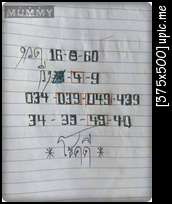 MUMMY
งวด 16-8-60
-4-9
034-039-049-439
34-39-49-40
* โชคดี *
[375x500] upic.me